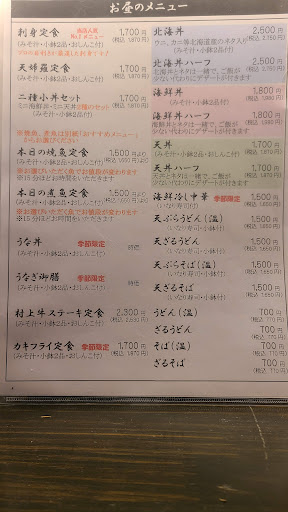 お昼のメニュー
刺身定食 当店人気No.1メニュー 1,700円
(みそ汁・小鉢2品・おしんこ付) (税込 1,870円)
天婦羅定食 1,700円
(みそ汁・小鉢2品・おしんこ付) (税込 1,870円)
二種小丼セット 1,700円
(税込 1,870円)
本日の焼魚定食 1,500円より
(みそ汁・小鉢2品・おしんこ付)
※お選びいただく魚でお値段が変わります
※15分ほどお時間をいただきます。
本日の煮魚定食 1,500円より
(みそ汁・小鉢2品・おしんこ付)
※お選びいただく魚でお値段が変わります
※15分ほどお時間をいただきます。
うな丼 季節限定 時価
(みそ汁・小鉢2品・おしんこ付)
うなぎ御膳 季節限定 時価
(みそ汁・小鉢2品・おしんこ付)
村上牛ステーキ定食 2,300円
(みそ汁・小鉢2品・おしんこ付) (税込 2,530円)
カキフライ定食 季節限定 1,700円
(みそ汁・小鉢2品・おしんこ付) (税込 1,870円)
北海丼 2,500円
ウニ、カニ等北海道産のネタ入り (税込 2,750円)
(みそ汁・小鉢2品・おしんこ付)
北海丼ハーフ 2,500円
北海丼とネタは一緒で、ご飯が (税込 2,750円)
少ない代わりにデザートが付きます
海鮮丼 1,800円
(みそ汁・小鉢2品・おしんこ付) (税込 1,980円)
海鮮丼ハーフ 1,800円
海鮮丼とネタは一緒で、ご飯が (税込 1,980円)
少ない代わりにデザートが付きます
天丼 1,700円
(みそ汁・小鉢2品・おしんこ付) (税込 1,870円)
天丼ハーフ 1,700円
天丼とネタは一緒で、ご飯が (税込 1,870円)
少ない代わりにデザートが付きます
海鮮冷し中華 季節限定 1,500円
(いなり寿司付) (税込 1,650円)
天ぷらうどん(温) 1,500円
(いなり寿司・小鉢付) (税込 1,650円)
天ざるうどん 1,500円
(いなり寿司・小鉢付) (税込 1,650円)
天ぷらそば(温) 1,500円
(いなり寿司・小鉢付) (税込 1,650円)
天ざるそば 1,500円
(いなり寿司・小鉢付) (税込 1,650円)
うどん(温) 700円
(税込 770円)
ざるうどん 700円
(税込 770円)
そば(温) 700円
(税込 770円)
ざるそば 700円
(税込 770円)